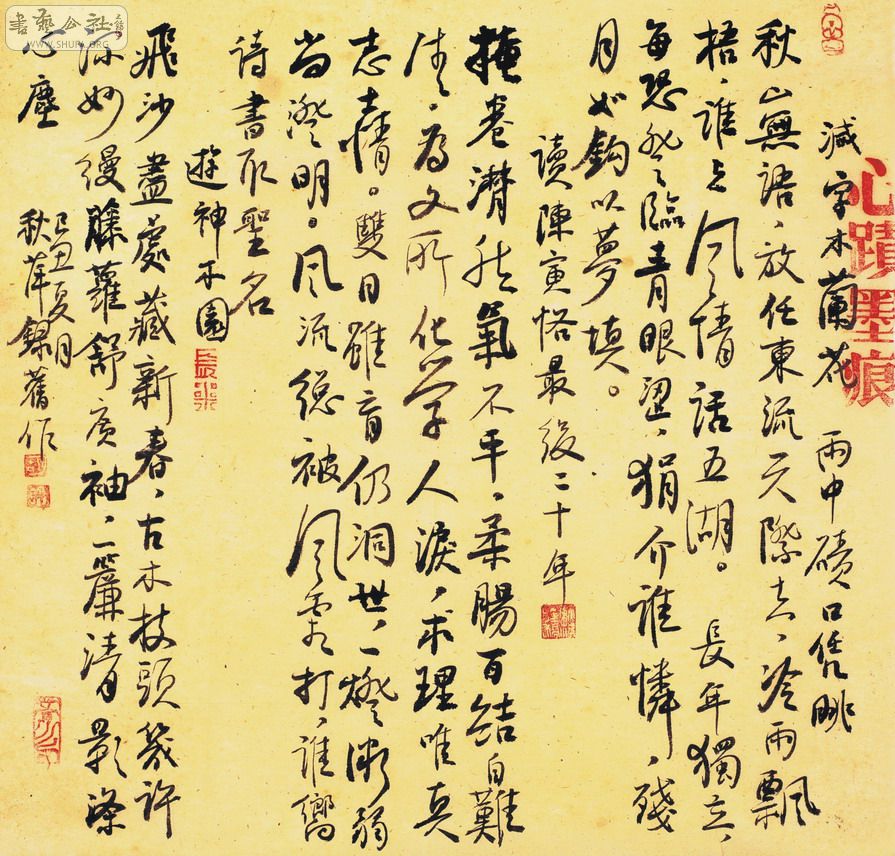 書藝公社
WWW.SHUFA.ORG
心蹟墨痕
減字木蘭花 雨中磧口凭眺
秋山無語，放任東流天際去，冷雨飄
梧，誰与風情話五湖。長年獨立，
每恐登臨青眼望，狷介誰憐，殘
月如鈎以夢填。
讀陳寅恪最後二十年
掩卷潸然氣不平，柔腸百結自難
清，為文所化學人淚，求理唯真
志士情。雙目雖盲仍洞世，一燈漸弱
尚澄明。風流總被風雲打，誰嚮
詩書取聖名
遊神木園
飛沙盡處藏新春，古木枝頭幾許
深妙縵藤蘿舒廣袖，一簾清影滌
心塵
己丑夏月
秋萍錄舊作